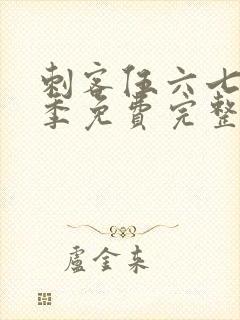 刺客伍六七
季免費完整
盧金东